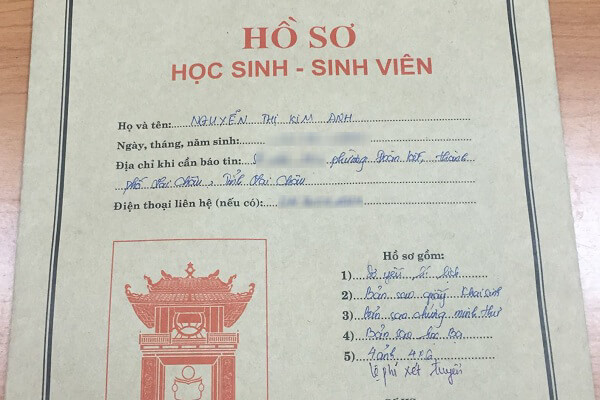 HỒ SƠ
HỌC SINH - SINH VIÊN
Họ và tên: NGUYỄN THỊ KIM ANH
Ngày, tháng, năm sinh:
Địa chỉ khi cần báo tin: phường Đoàn kết, thành
phố Lai Châu, tỉnh Lai Châu
Điện thoại liên hệ (nếu có):
Hồ sơ gồm:
1) Sơ yếu lí lịch
2) Bản sao giấy khai sinh
3) Bản sao chứng minh thư
4) Bản sao học Bạ
5) 4 ảnh 4x6
lệ phí xét tuyển